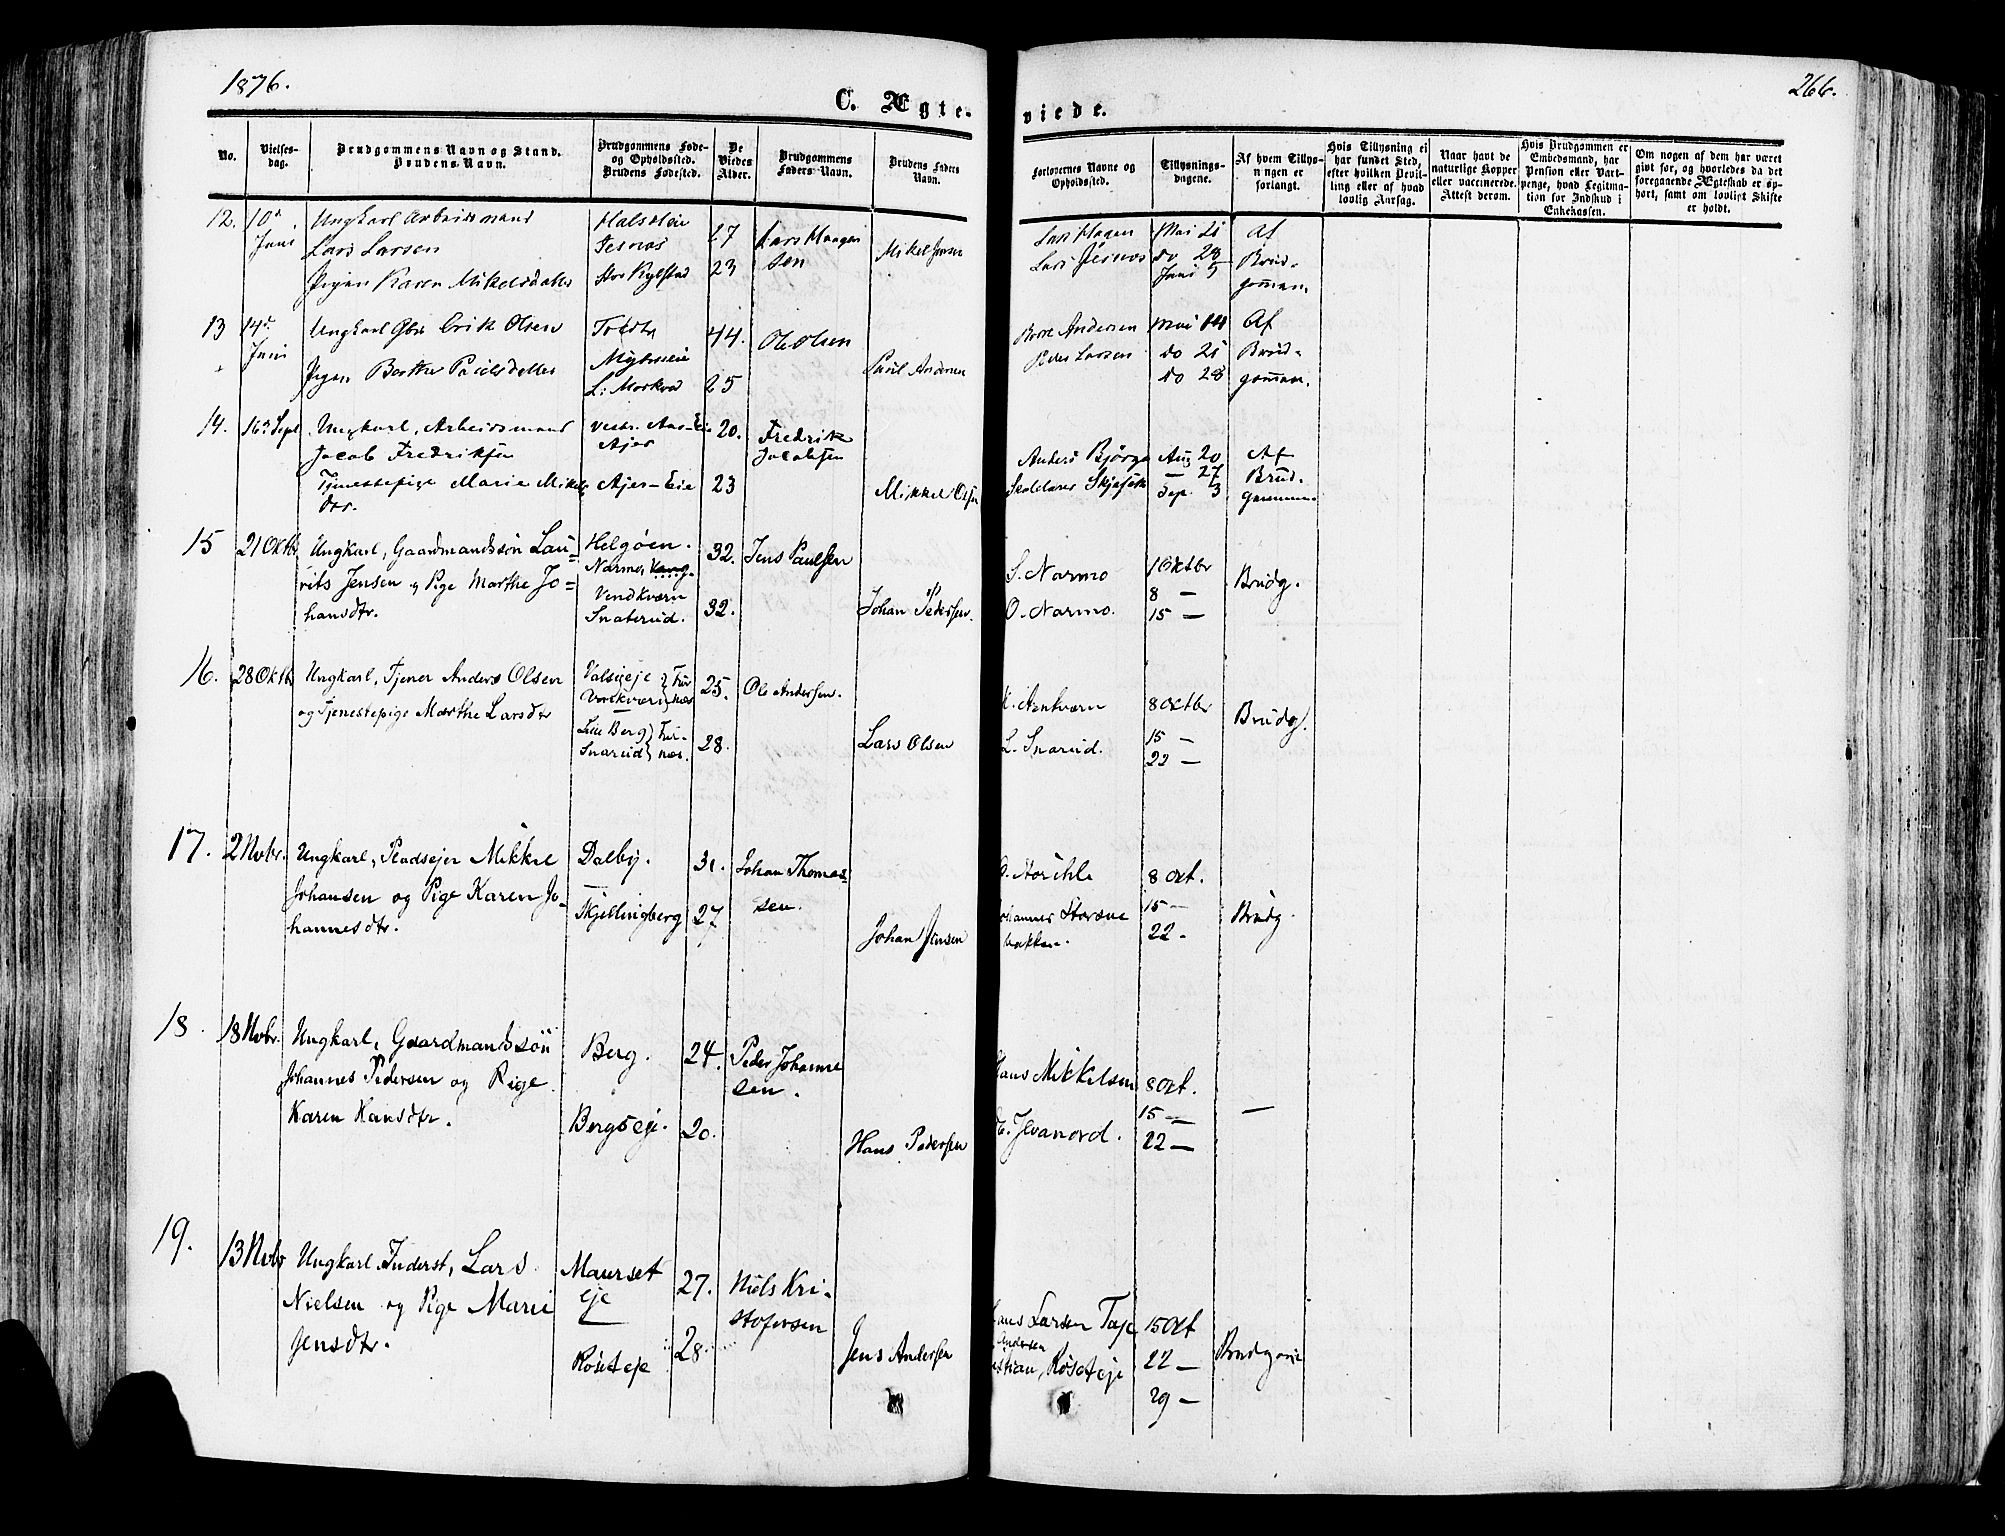 1876.
266.
C. Ægte-
viede.
No.
Vielses-
dag.
Brudgommens Navn og Stand.
Brudens Navn.
Brudgommens Føde-
og Opholdssted.
Brudens Fødested.
De
Viedes
Alder.
Brudgommens
Faders Navn.
Brudens Faders
Navn.
Forlovernes Navne og
Opholdssted.
Tillysnings-
dagene.
Af hvem Tillys-
ningen er
forlangt.
Hvis Tillysning ei
har fundet Sted,
efter hvilken Bevil-
ling eller af hvad
lovlig Aarsag.
Naar havt de
naturlige Kopper
eller vaccinerede.
Attest derom.
Hvis Brudgommen er
Embedsmand, har
Pension eller Vart-
penge, hvad Legitima-
tion for Indskud i
Enkekassen.
Om nogen af dem har været
gift før, og hvorledes da det
foregaaende Ægteskab er op-
hørt, samt om lovligt Skifte
er holdt.
12.
10de
Juni
Ungkarl Arbeidsmand
Lars Larsen
Pigen Karen Mikelsdatter
27
23
Lars Haagen
sen
Mikel Jensen
Lars Hagen
Mai 21
do 28
Juni 5
Af
Brud-
gomman.
13
14de
Juni
Ungkarl Erik Olsen
Pigen Berthe Paulsdatter
44.
25
Ole Olsen
Paul Andersen
Andersen
Peder Larsen
Mai 14
do 21
do 28
Af
Brud-
gomman.
14.
16de Sept
Ungkarl, Arbeidsmand
Jacob Fredriksen
Tjenestepige Marie Mikels
dtr.
Ajer
Ajer-Eie
20.
23
Fredrik
Jacobsen
Mikkel Olsen
Anders Bjørge
Aug 20
— 27
Sep. 3
Af
Brud-
gommen
15
21 Oktbr
Ungkarl, Gaardmandssøn Lau-
rits Jensen og Pige Marthe Jo-
hansdtr.
Helgøen.
Narmo,
Vendkværn
Snaterud.
32.
32.
Jens Paulsen
Johan Pedersen.
S. Narmo
O. Narmo.
1 Oktbr
8 —
15 —
Brudg.
16.
28 Oktbr
Ungkarl, Tjener Anders Olsen
og Tjenestepige Marthe Larsdtr
Valseje } Fur
} næs
Lille Berg } Fur-
Snarud } næs.
25.
28.
Ole Andersen.
Lars Olsen
L. Snarud.
8 Octbr
15 —
22 —
Brudg.
17.
2 Nvbr.
Ungkarl, Pladsejer Mikkel
Johansen og Pige Karen Jo-
hannesdtr.
Dalby.
Skjellingberg
31.
27
Johan Thomas-
sen.
Johan Jensen
Johannes
bakken.
8 Oct.
15 —
22 -
Brudg.
18.
18 Nvbr.
Ungkarl, Gaardmandssøn
Johannes Pedersen og Pige
Karen Hansdtr.
Berg.
Bergseje.
24.
20.
Peder Johanne
sen.
Hans Pedersen
Hans Mikkelsen
Jevanord.
8 Oct.
15 —
22 —
—
19.
13 Nvbr
Ungkarl Inderst, Lars
Nielsen og Pige Marie
Jensdtr.
Maurset
eje
Røseteje
27.
28.
Niels Kri-
stofersen
Jens Andersen
Hans Larsen
Andersen
Røseteje
15 Oct
22 —
29 —